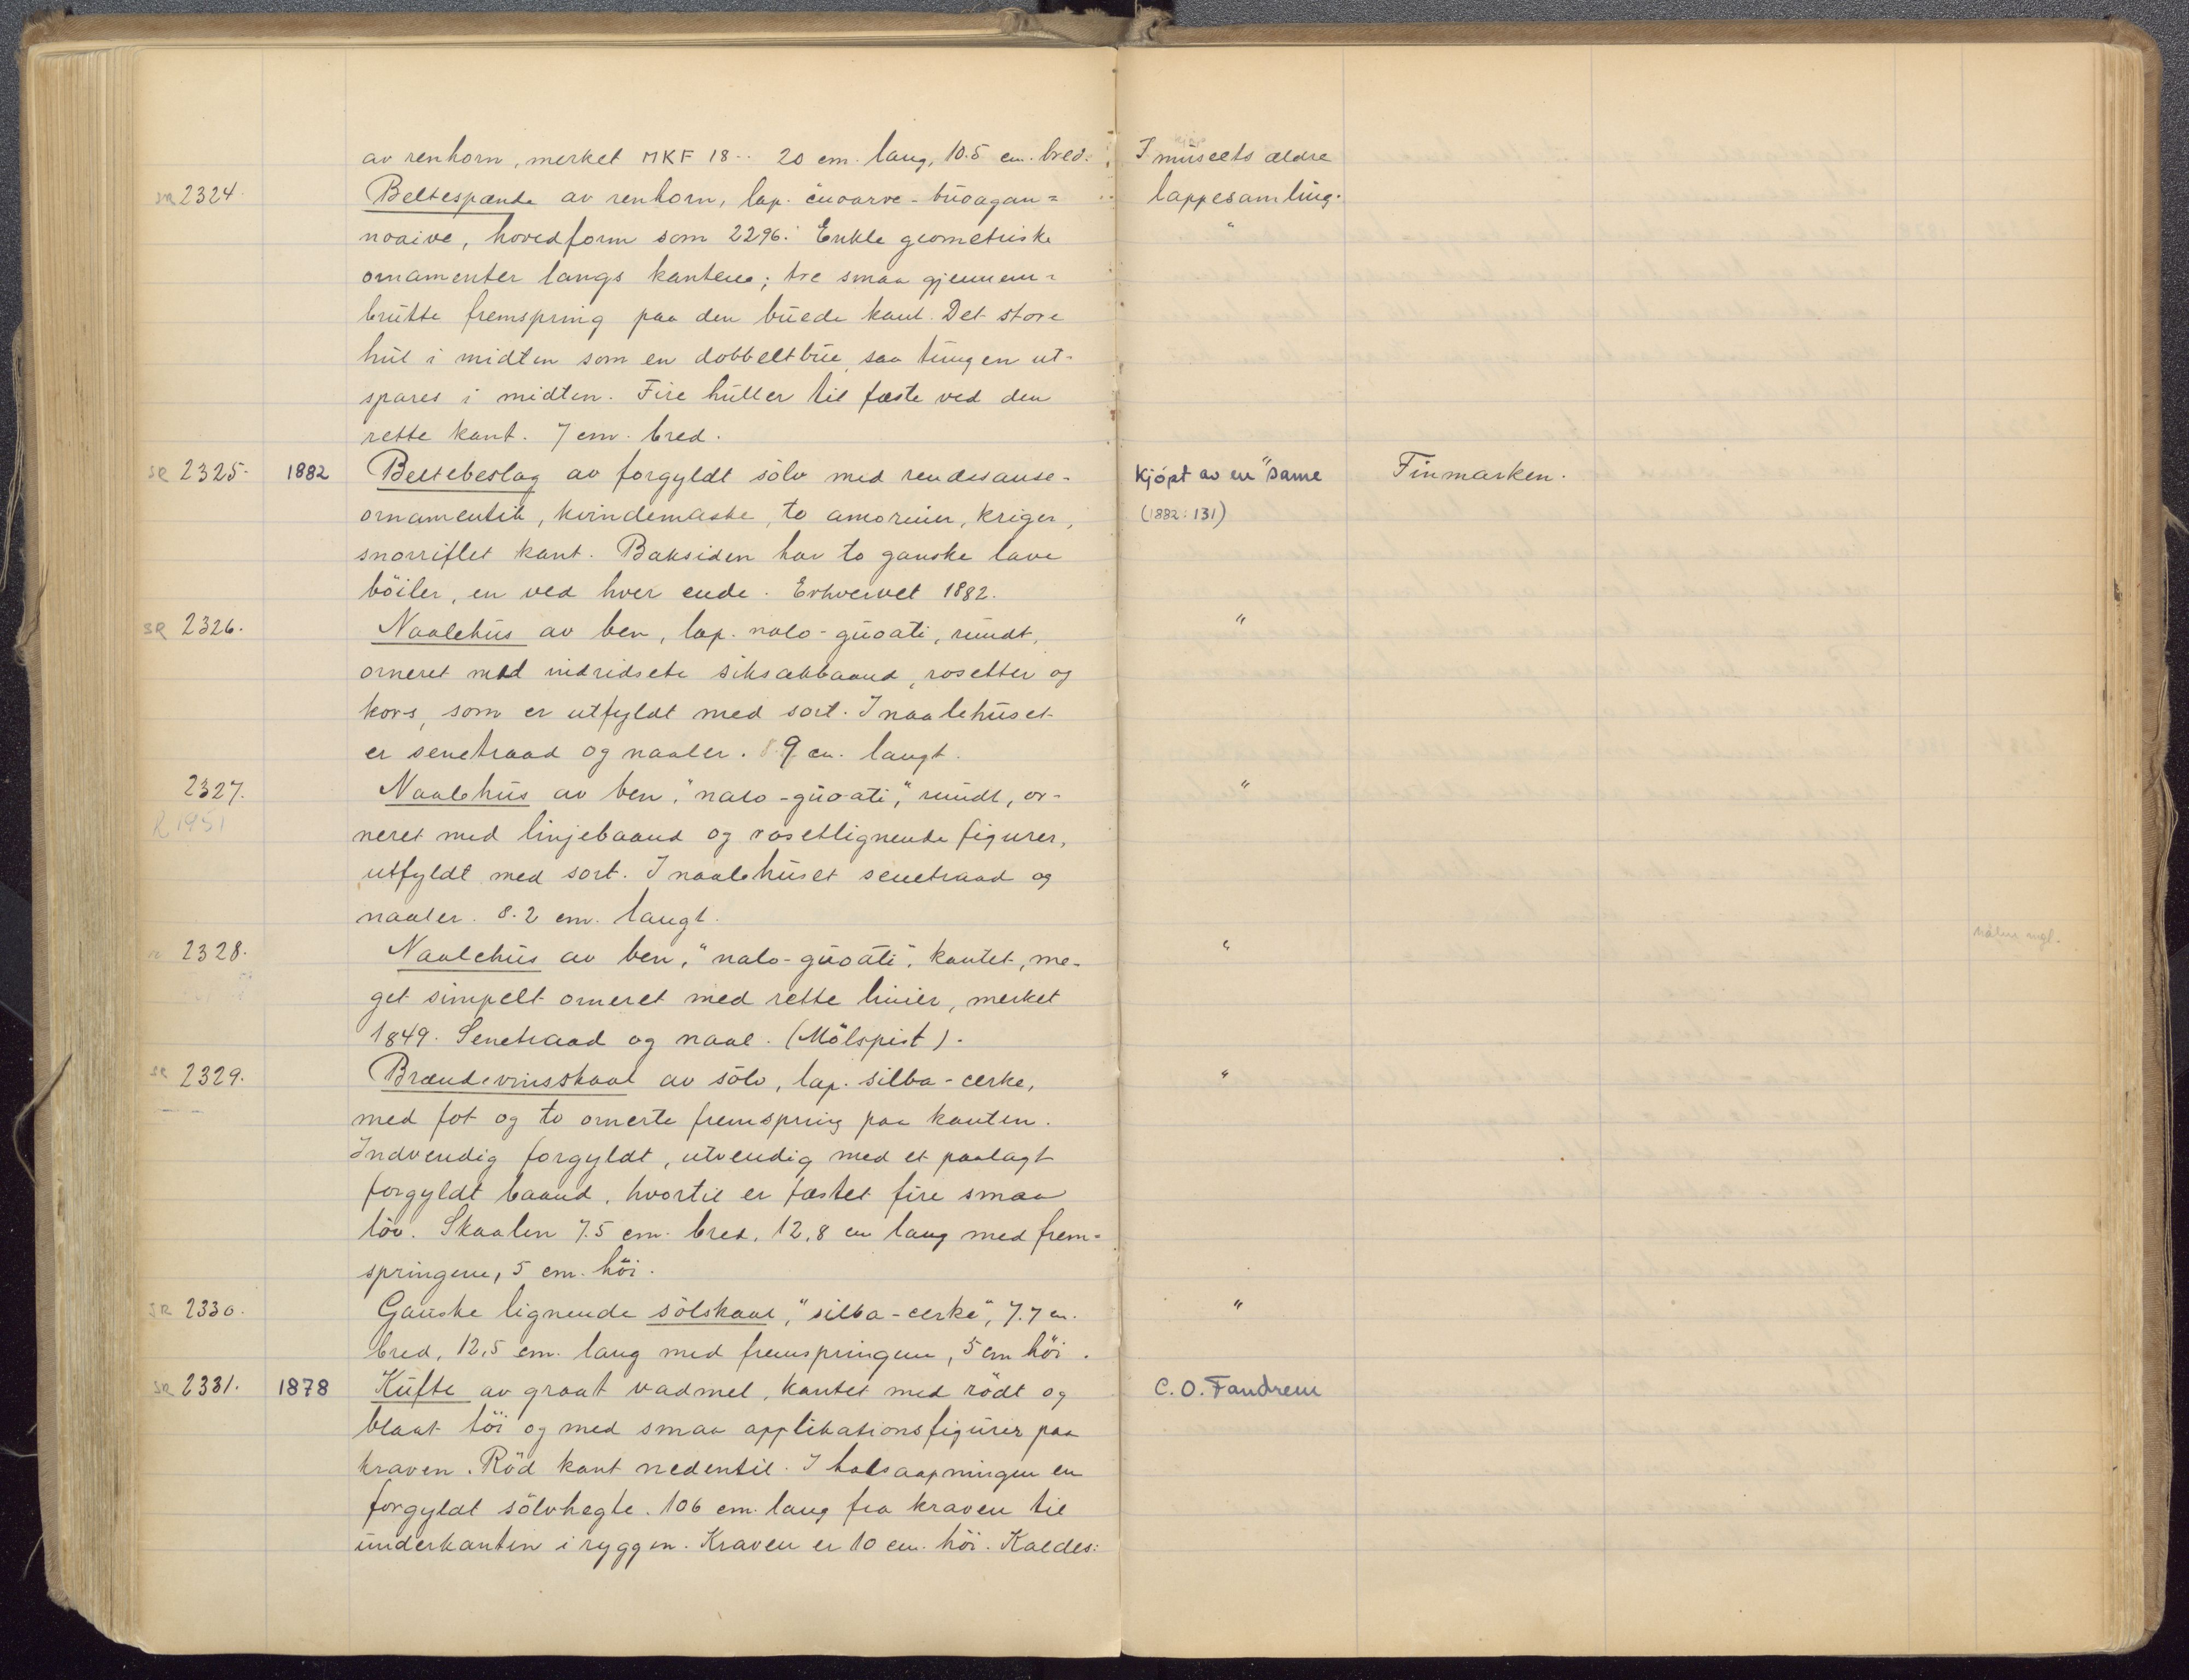 av renhorn, merket MKF 18·· 20 cm. lang, 10.5 cm. bred. I museets ældre
SR 2324. Beltespænde av renhorn, lap. čuoarve-buoagan= lappesamling.
noaive, hovedform som 2296. Enkle geometriske "
ornamenter langs kantene; tre smaa gjennem=
brutte fremspring paa den buede kant. Det store
hul i midten som en dobbeltbue, saa tungen ut-
spares i midten. Fire huller til fæste ved den
rette kant. 7 cm. bred.
SR 2325. 1882 Beltebeslag av forgyldt sölv med renæsanse- Kjöpt av en same Finmarken.
ornamentik, kvindemaske, to amoriner, kriger, (1882: 131)
snorriflet kant. Baksiden har to ganske lave
böiler, en ved hver ende. Erhvervet 1882.
SR 2326. Naalehus av ben, lap. nalo-guoati, rundt, "
orneret med indridsete siksakbaand, rosetter og
kors, som er utfyldt med sort. I naalehuset
er senetraad og naaler. 8.9 cm. langt.
2327. Naalehus av ben, "nalo-guoati," rundt, or- "
R 1951 neret med linjebaand og rosetlignende figurer,
utfyldt med sort. I naalehuset senetraad og
naaler. 8.2 cm. langt.
2328. Naalehus av ben, "nalo-guoati", kantet, me- " nålen mgl.
get simpelt orneret med rette linier, merket
1849. Senetraad og naal. (Mölspist).
SR 2329. Brændevinsskaal av sölv, lap. silba-cerke, "
med fot og to ornerte fremspring paa kanten.
Indvendig forgyldt, utvendig med et paalagt
forgyldt baand, hvortil er fæstet fire smaa
löv. Skaalen 7.5 cm. bred, 12,8 cm lang med frem=
springene, 5 cm. höi.
SR 2330. Ganske lignende sölskaal, "silba-cerke", 7.7 cm. "
bred, 12,5 cm. lang med fremspringene, 5 cm höi.
SR 2331. 1878 Kufte av graat vadmel, kantet med rödt og C. O. Fandrem
blaat töi og med smaa applikationsfigurer paa
kraven. Röd kant nedentil. I halsaapningen en
forgyldt sölvhegte. 106 cm. lang fra kraven til
underkanten i ryggen. Kraven er 10 cm. höi. Kaldes: